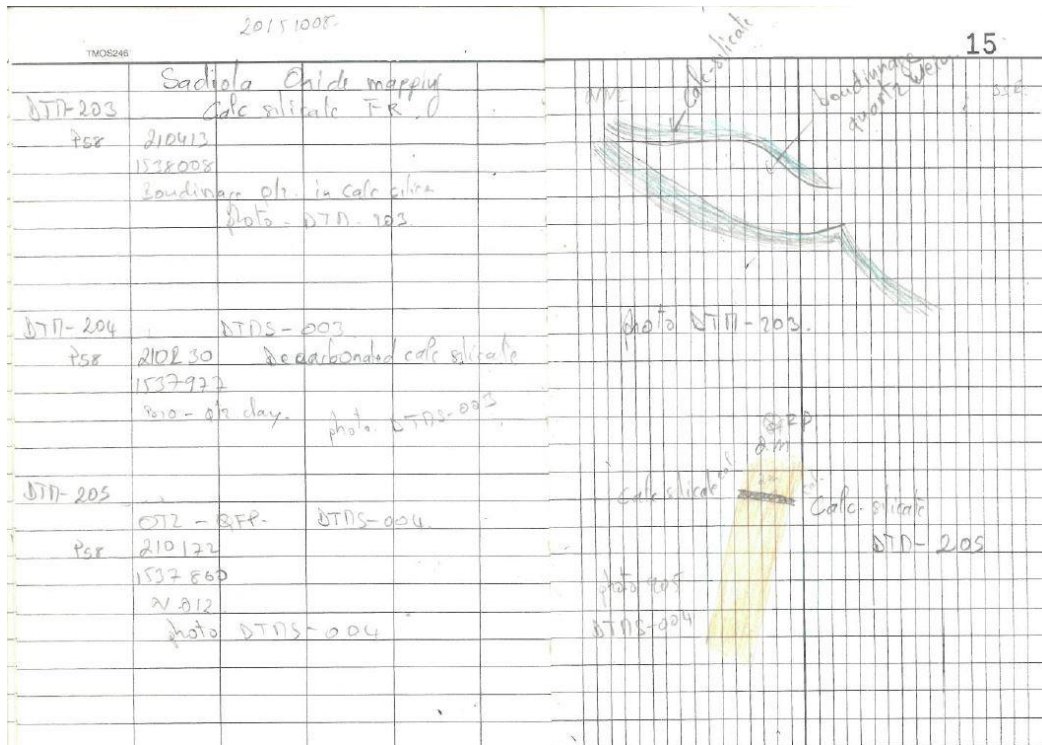 20151008
TMOS246
Sadiola Oxide mapping
DTM-203 Calc silicate FR
P58 210413
1538008
Boudinage qtz in calc
photo - DTM-203
DTM-204 DTMS-003
P58 210230 Decarbonated calc silicate
1537977
Bio - qtz clay. photo DTMS-003
DTM-205
QTZ - QFP. DTMS-004
P58 210172
1537860
N012
photo DTMS-004
15
calc-silicate
boudinage
quartz
SSE
photo DTM-203.
2m
Calc silicate
Calc-silicate
DTM-205
photo 205
DTMS-004